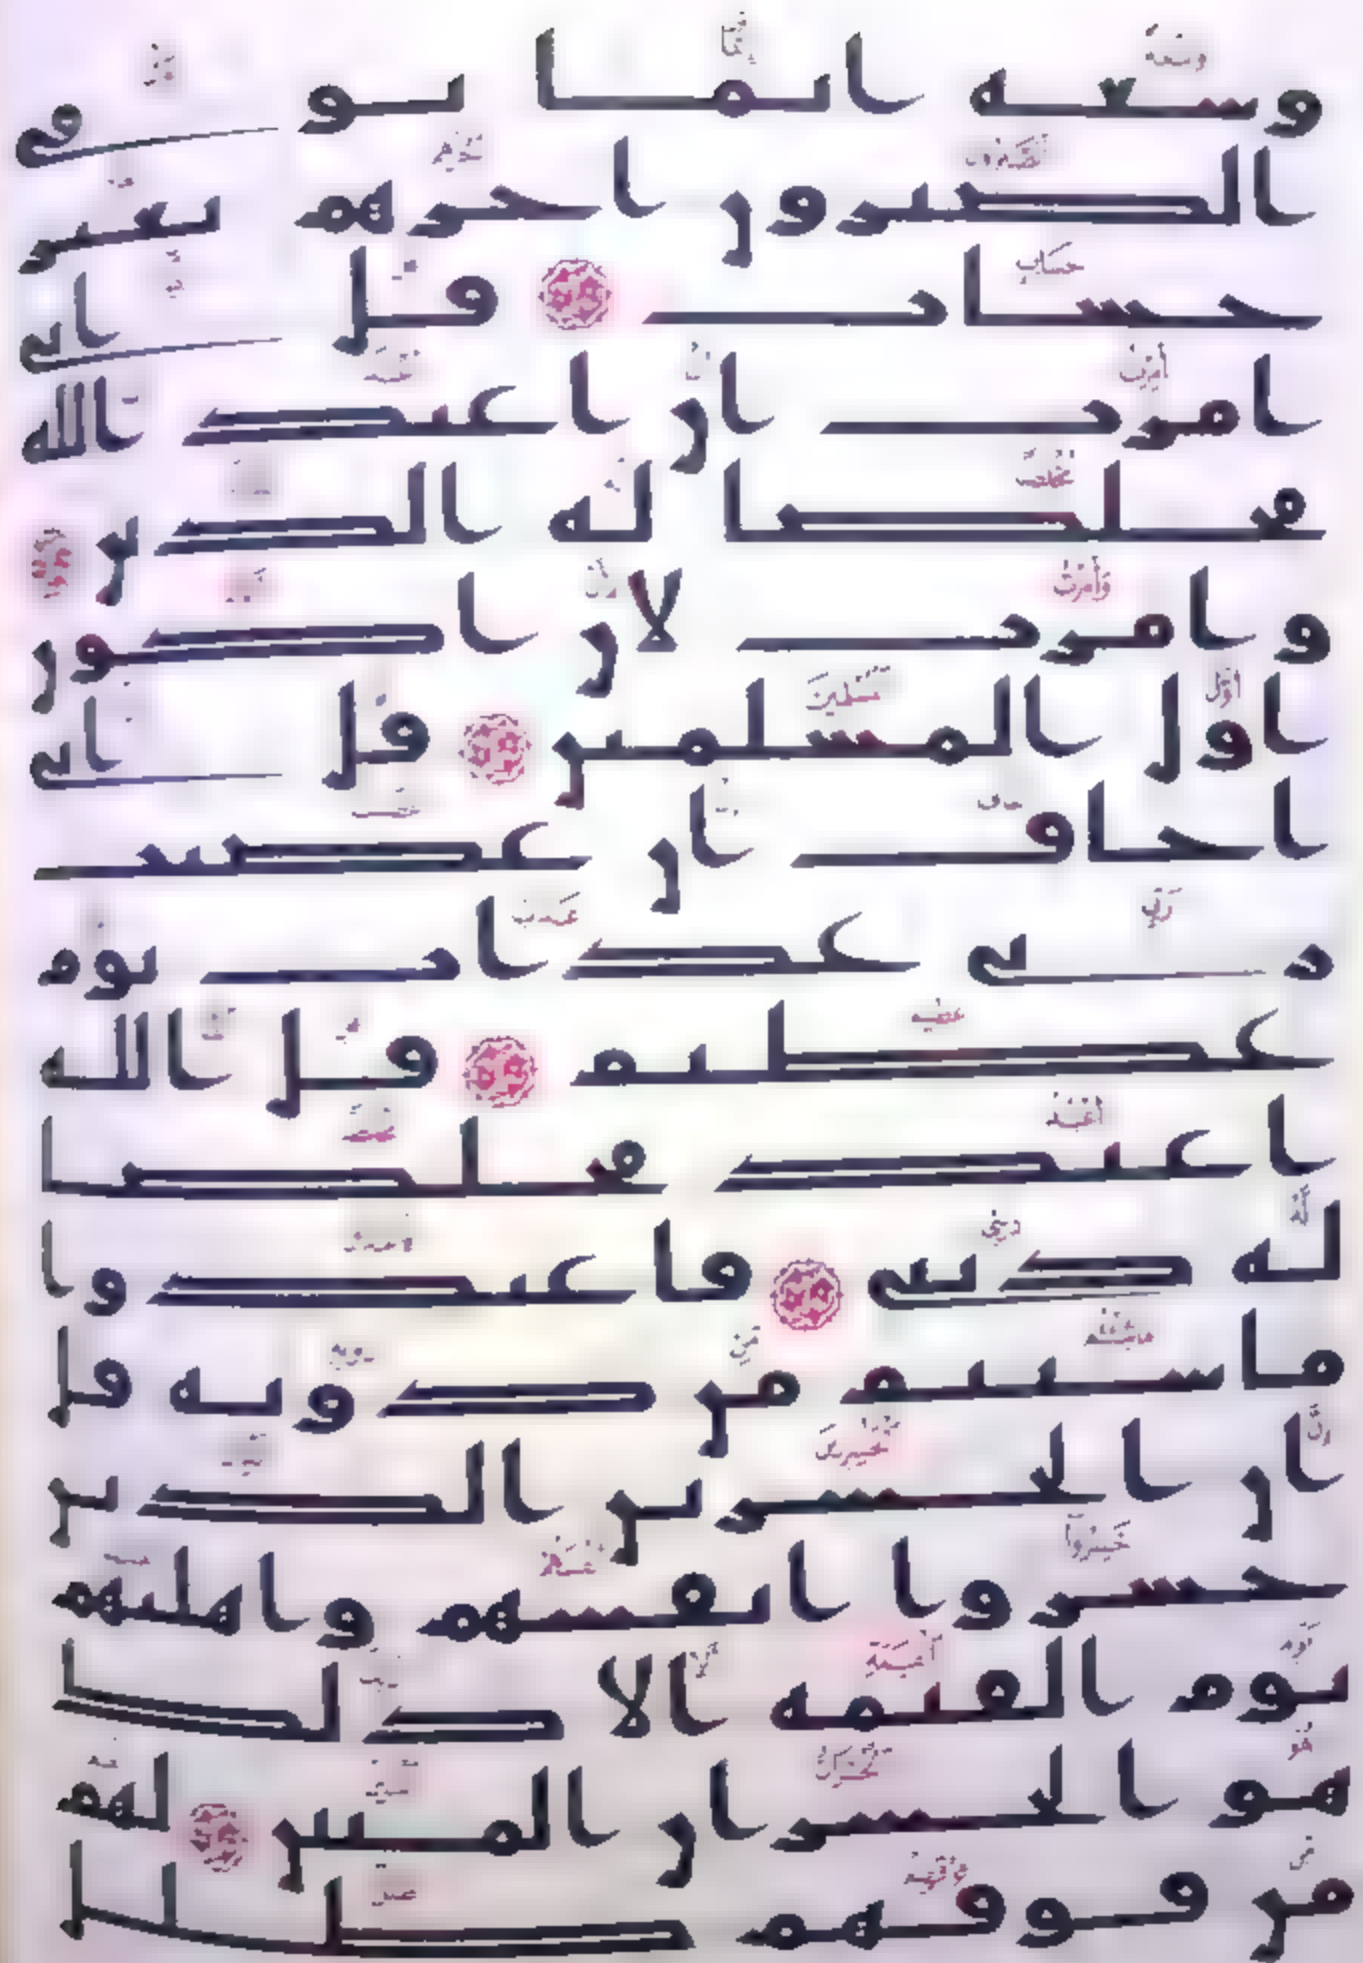 وسعة انما يوفى
الصبرون اجرهم بغير
حساب قل انى
امرت ان اعبد الله
مخلصا له الدين
وامرت لان اكون
اول المسلمين قل انى
اخاف ان عصيت
ربى عذاب يوم
عظيم قل الله
اعبد مخلصا
له دينى فاعبدوا
ما شئتم من دونه قل
ان الخسرين الذين
خسروا انفسهم واهليهم
يوم القيمة الا ذلك
هو الخسران المبين لهم
من فوقهم ظلل